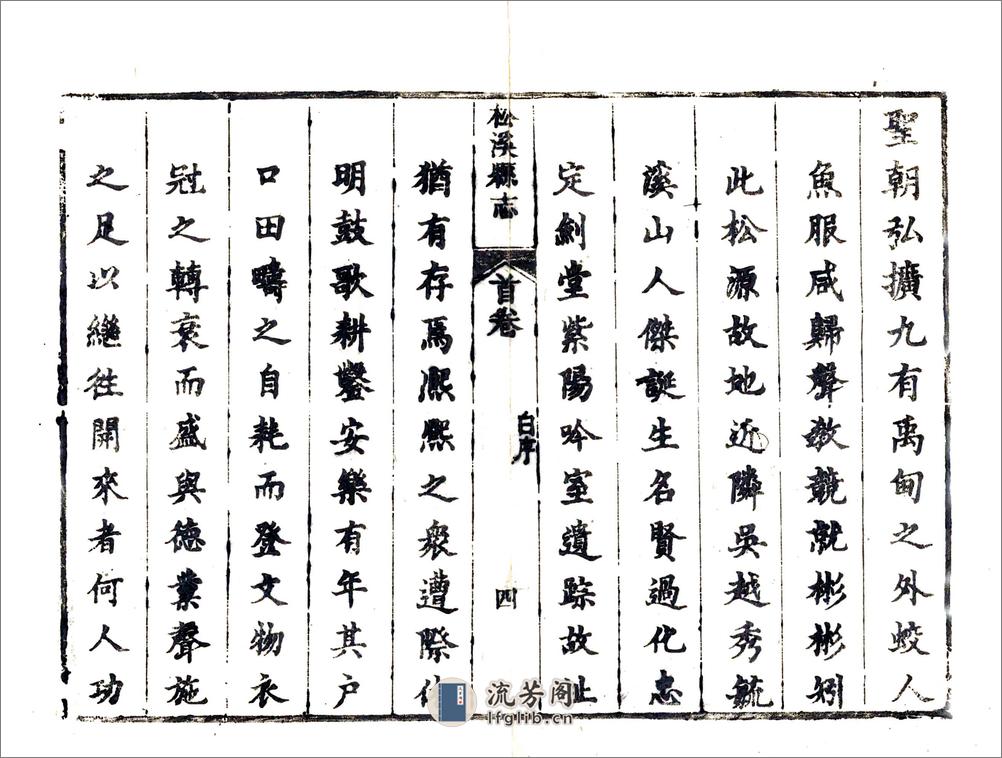 聖朝弘擴九有禹甸之外蛟人
魚服咸歸聲教兢就彬彬矧
此松源故地近隣吳越秀毓
溪山人傑誕生名賢過化忠
定劍堂紫陽吟室遺踪故址
松溪縣志
首卷
白序
四
猶有存焉凞凞之衆遭際
明鼓歌耕鑿安樂有年其户
口田疇之自耗而登文物衣
冠之轉衰而盛與德業聲施
之足以繼徃開來者何人功
流芳阁
lfglib.cn